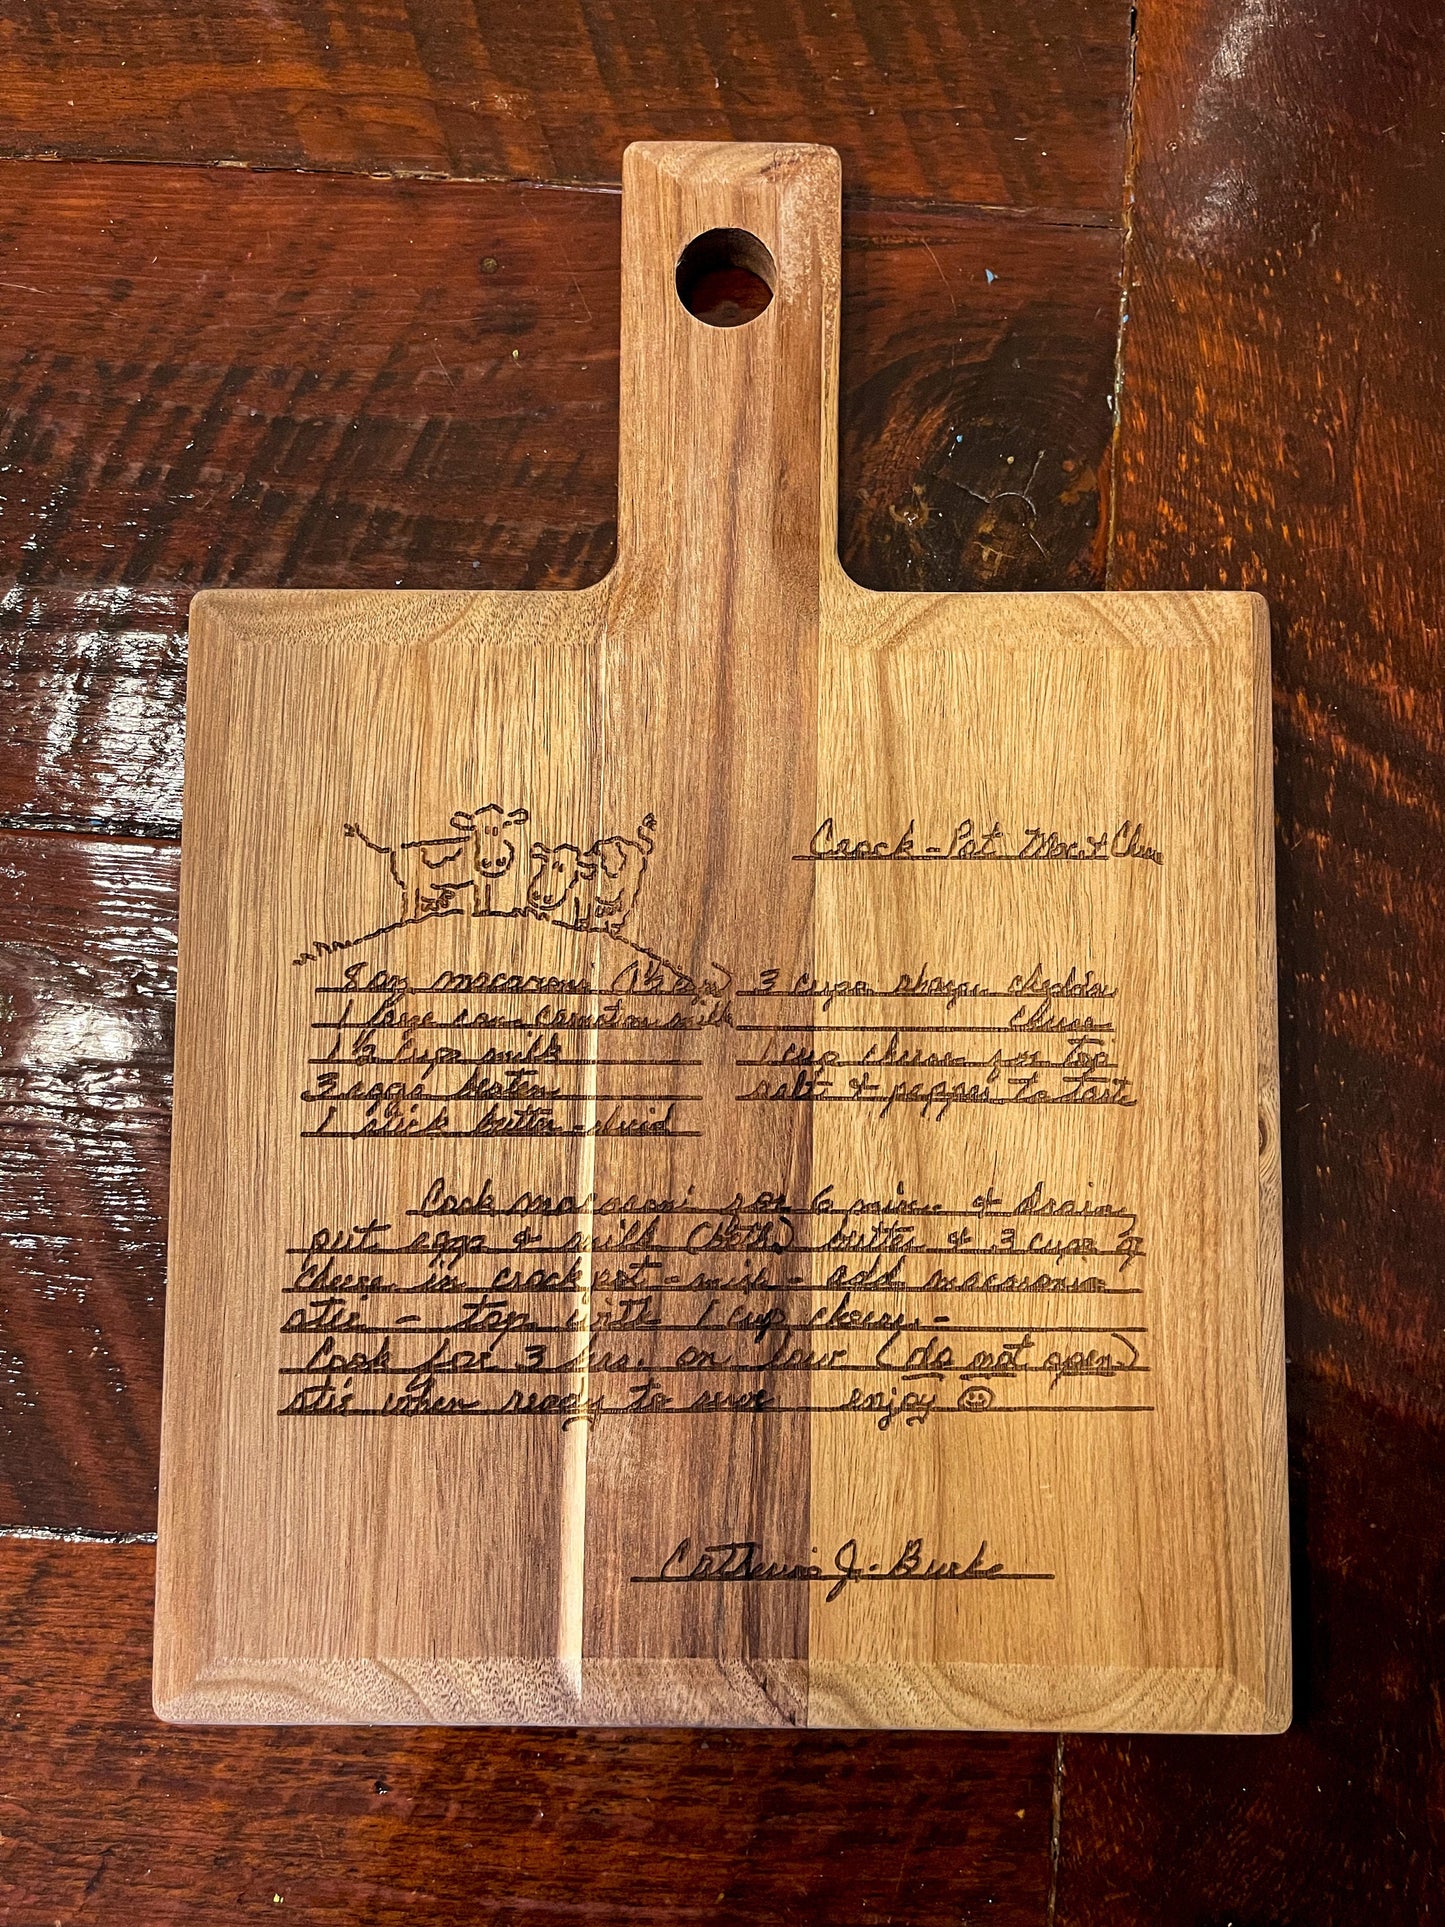 Crock-Pot Mac & Cheese
8 oz macaroni (1/2 box) 3 cups sharp cheddar
1 large can Carnation milk cheese
1 1/2 cup milk 1 cup cheese for top
3 eggs beaten salt & pepper to taste
1 stick butter - sliced
Cook macaroni for 6 mins & drain,
put eggs & milk (both) butter & 3 cups of
cheese in crock pot - mix - add macaroni
stir - top with 1 cup cheese -
Cook for 3 hrs. on low (do not open)
stir when ready to serve enjoy ☺
Catherine J. Burke